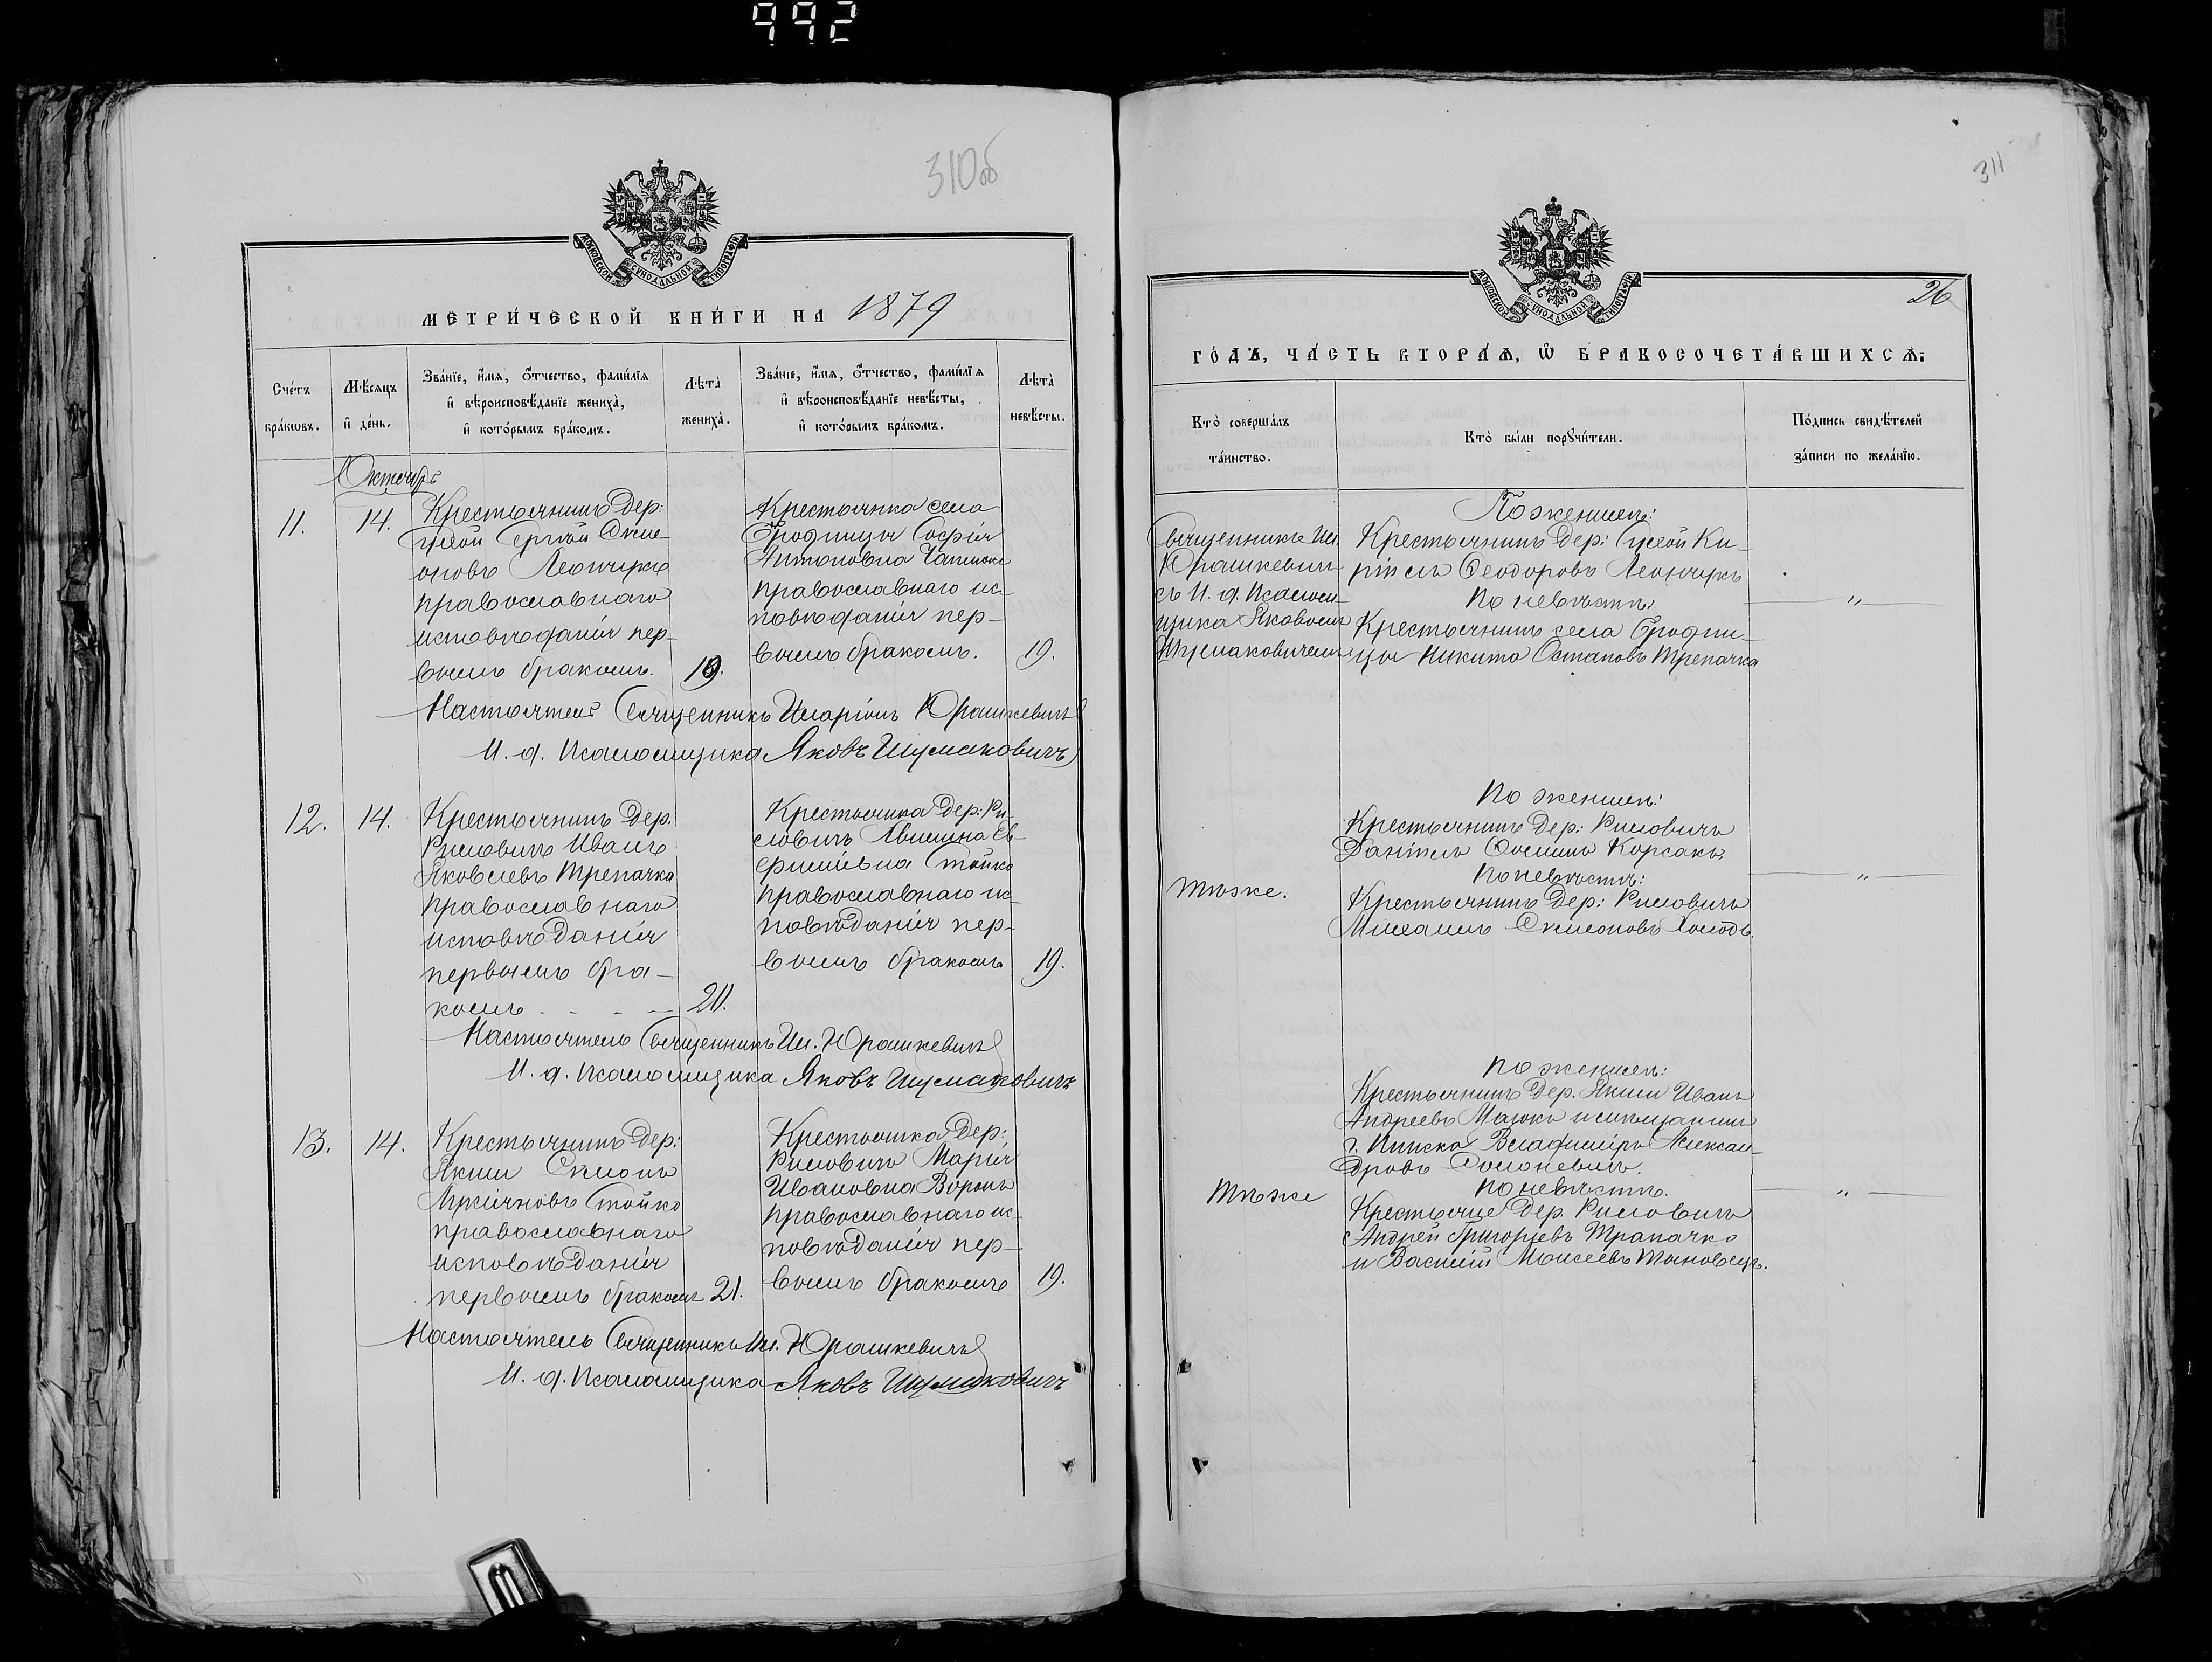 992
310об
МОСКОВСКОЙ СѴНОДАЛЬНОЙ ТИПОГРАФІИ
МЕТРИ́ЧЕСКОЙ КНИ́ГИ НА 1879
Сче́тъ бра́кѡвъ.
Мѣ́сяцъ и҆ де́нь.
Зва́нїе, и҆́мѧ, ѻ҆́тчество, фами́лїѧ
и҆ вѣроисповѣ́данїе жениха̀,
и҆ кото́рымъ бра́комъ.
Лѣ́та жениха̀.
Зва́нїе, и҆́мѧ, ѻ҆́тчество, фами́лїѧ
и҆ вѣроисповѣ́данїе невѣ́сты,
и҆ кото́рымъ бра́комъ.
Лѣ́та невѣ́сты.
Октябрь
11.
14.
Крестьянинъ Дер:
Сергѣй Симе-
оновъ Леончукъ
православнаго
исповѣданія пер-
вымъ бракомъ.
19.
Крестьянка села
Бродницы Софія
Антоновна
православнаго ис-
повѣданія пер-
вымъ бракомъ.
19.
Настоятель Священникъ Иларіонъ Юрашкевичъ
И. д. Псаломщика Яковъ Шумаковичъ
12.
14.
Крестьянинъ Дер.
Рыловичъ Иванъ
Яковлевъ Трепачка
православнаго
исповѣданія
первымъ бра-
комъ
20.
Крестьянка Дер: Ры-
ловичъ Ев-
фиміевна Стойко
православнаго ис-
повѣданія пер-
вымъ бракомъ
19.
Настоятель Священникъ Ил. Юрашкевичъ
И. д. Псаломщика Яковъ Шумаковичъ
13.
14.
Крестьянинъ Дер:
Якши Симеонъ
Лукіяновъ Стойко
православнаго
исповѣданія
первымъ бракомъ
21.
Крестьянка Дер:
Рыловичъ Марія
Ивановна Воронъ
православнаго ис-
повѣданія пер-
вымъ бракомъ
19.
Настоятель Священникъ Ил. Юрашкевичъ
И. д. Псаломщика Яковъ Шумаковичъ
311
МОСКОВСКОЙ СѴНОДАЛЬНОЙ ТИПОГРАФІИ
26
ГО́ДЪ, ЧА́СТЬ ВТОРА́Ѧ, Ѡ҆ БРАКОСОЧЕТА́ВШИХСѦ:
Кто̀ соверша́лъ та́инство.
Кто̀ бы́ли порꙋчи́тели.
По́дпись свидѣ́телей
за́писи по жела́нїю.
Священникъ Ил.
Юрашкевичъ
съ И. д. Псалом-
щика Яковомъ
Шумаковичемъ
По женихѣ:
Крестьянинъ Дер: Ки-
риллъ Ѳеодоровъ Леончукъ
По невѣстѣ:
Крестьянинъ села Бродни-
цы Никита Остаповъ Трепачка
"
Тѣже.
По женихѣ:
Крестьянинъ Дер: Рыловичъ
Даніилъ Ѳоминъ Корсакъ
По невѣстѣ:
Крестьянинъ Дер: Рыловичъ
Михаилъ Симеоновъ Холодъ.
"
Тѣже
По женихѣ:
Крестьянинъ Дер. Якши Иванъ
Андреевъ Мацюкъ и мѣщанинъ
г. Пинска Владиміръ Алексан-
дровъ
По невѣстѣ.
Крестьяне Дер. Рыловичъ
Андрей Григорьевъ Трапачко
и Василій Моисеевъ Тыновецъ.
"